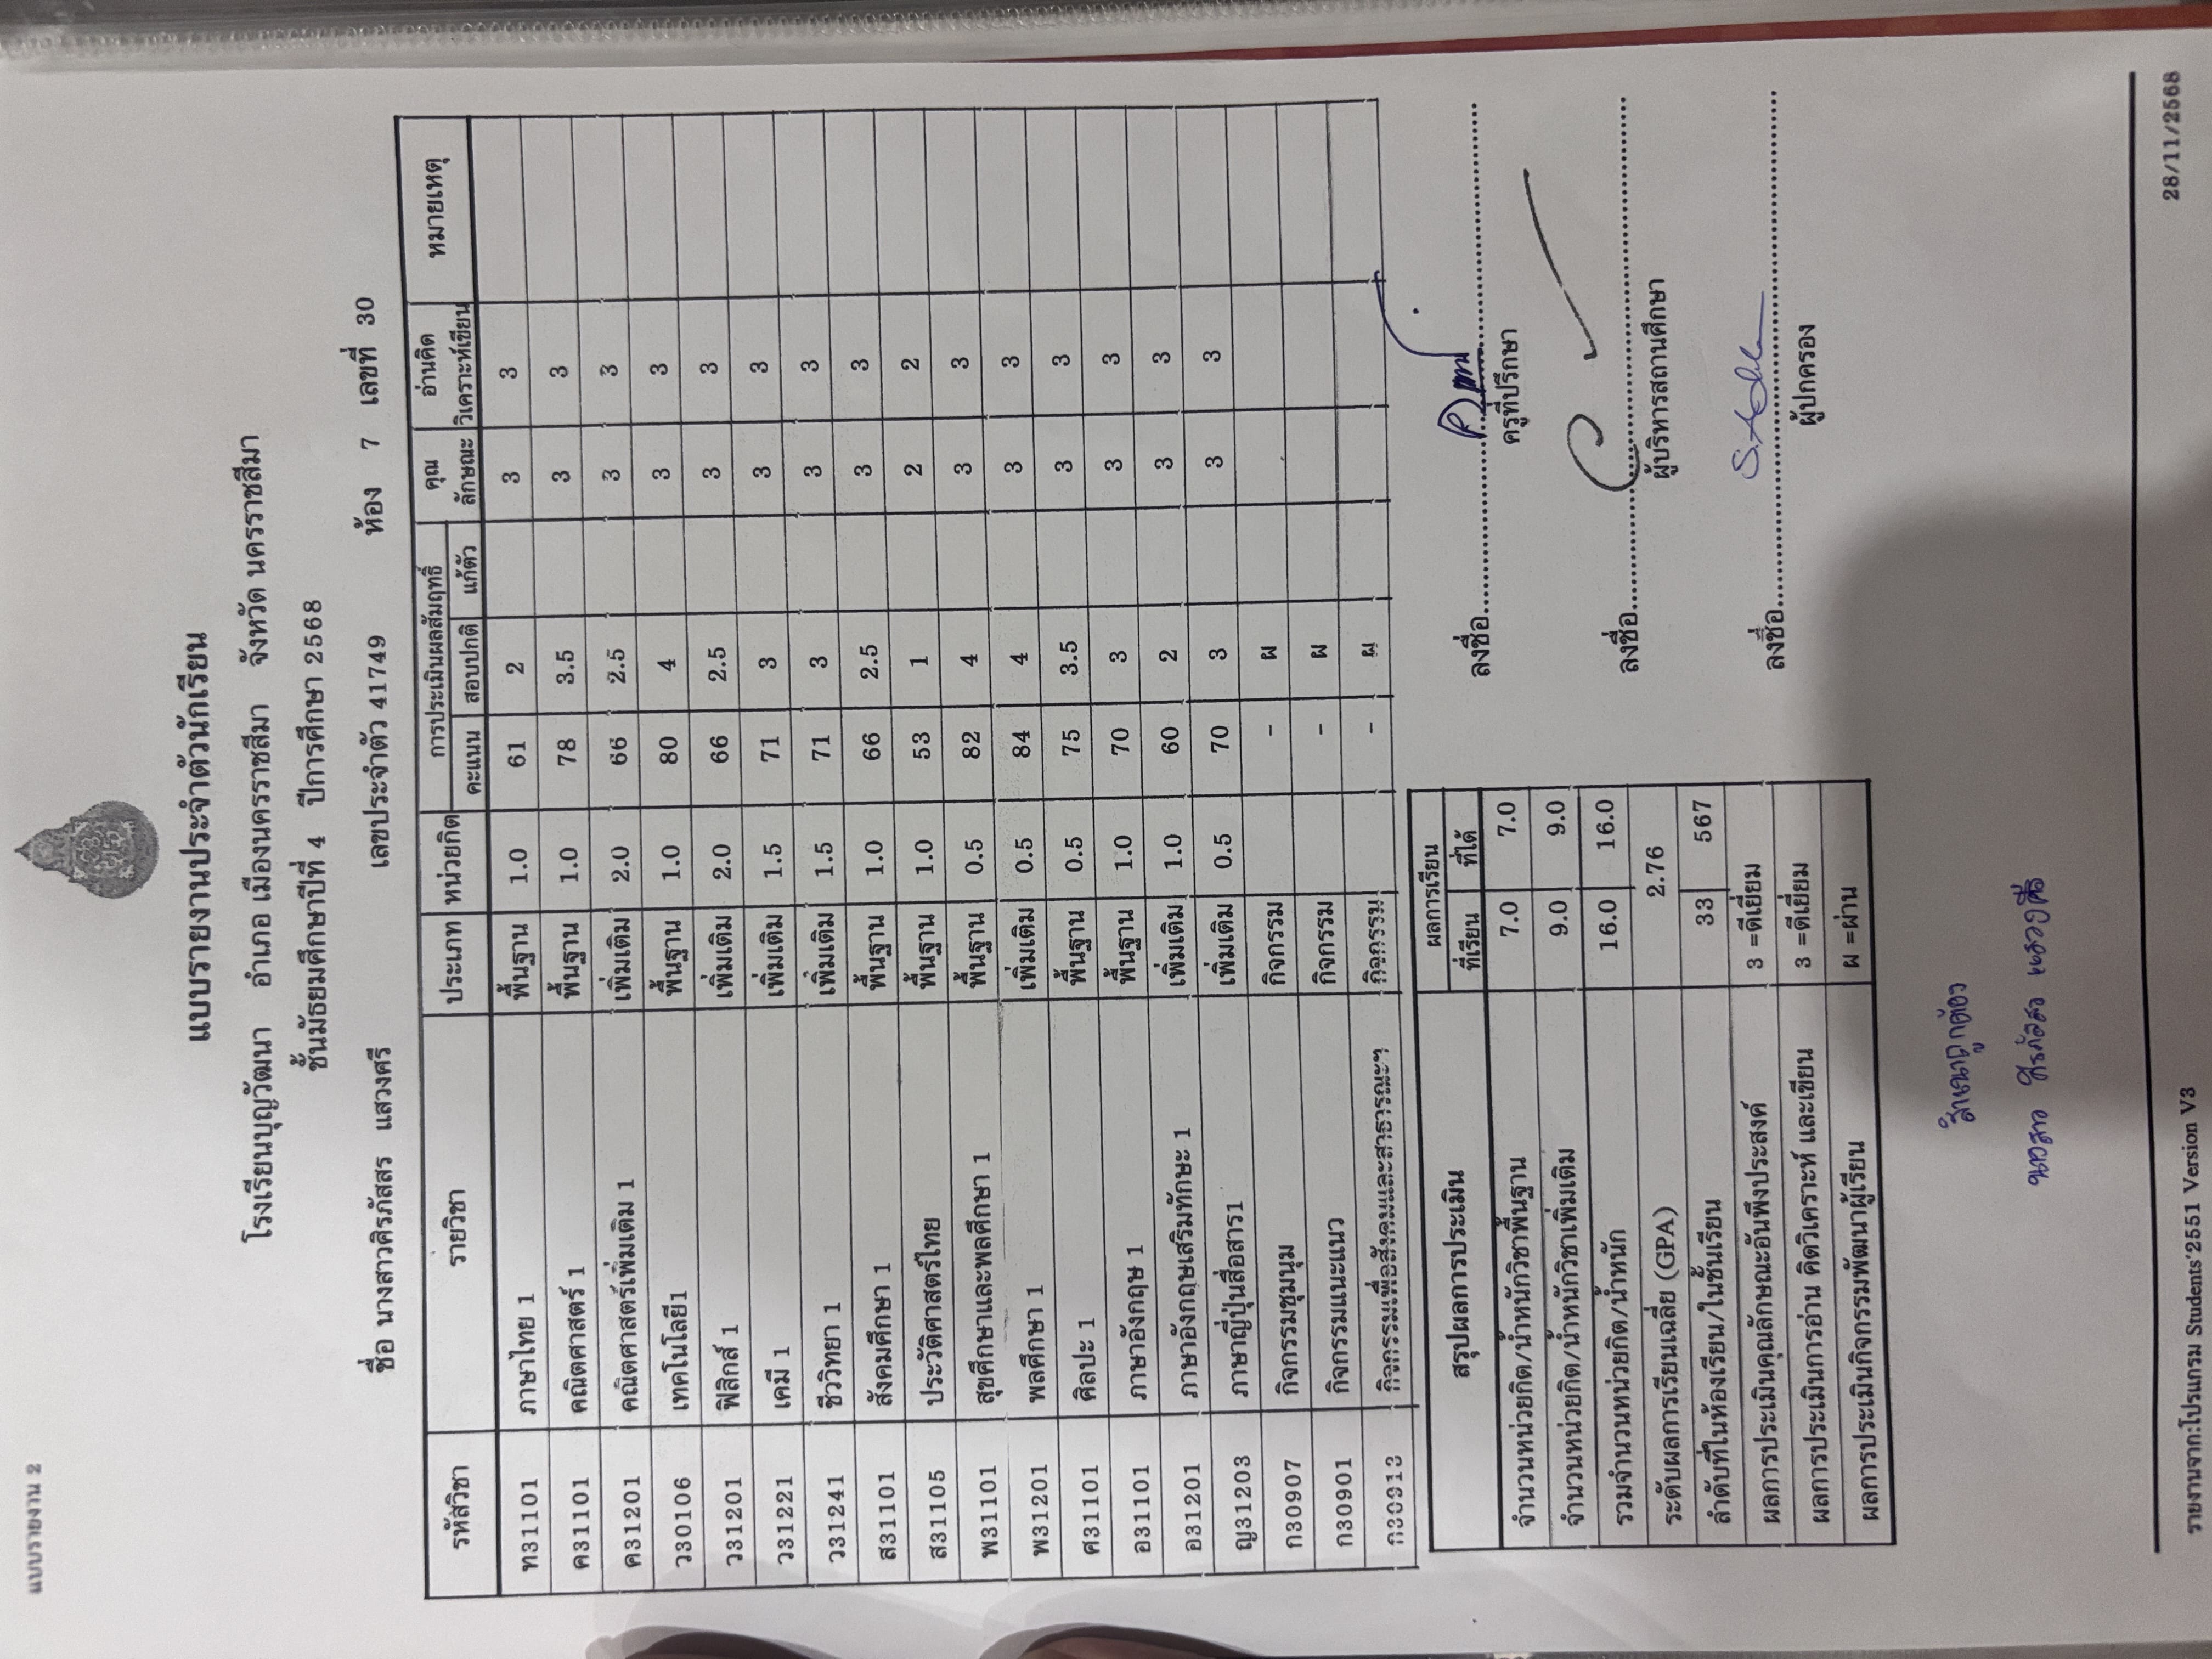 แบบรายงาน 2
แบบรายงานประจำตัวนักเรียน
โรงเรียนบุญวัฒนา อำเภอ เมืองนครราชสีมา จังหวัด นครราชสีมา
ชั้นมัธยมศึกษาปีที่ 4 ปีการศึกษา 2568
ชื่อ นางสาวศิรภัสสร แสวงศรี เลขประจำตัว 41749 ห้อง 7 เลขที่ 30
รหัสวิชา รายวิชา ประเภท หน่วยกิต การประเมินผลสัมฤทธิ์ คุณ อ่านคิด หมายเหตุ
คะแนน สอบปกติ แก้ตัว ลักษณะ วิเคราะห์เขียน
ท31101 ภาษาไทย 1 พื้นฐาน 1.0 61 2 3 3
ค31101 คณิตศาสตร์ 1 พื้นฐาน 1.0 78 3.5 3 3
ค31201 คณิตศาสตร์เพิ่มเติม 1 เพิ่มเติม 2.0 66 2.5 3 3
ว30106 เทคโนโลยี1 พื้นฐาน 1.0 80 4 3 3
ว31201 ฟิสิกส์ 1 เพิ่มเติม 2.0 66 2.5 3 3
ว31221 เคมี 1 เพิ่มเติม 1.5 71 3 3 3
ว31241 ชีววิทยา 1 เพิ่มเติม 1.5 71 3 3 3
ส31101 สังคมศึกษา 1 พื้นฐาน 1.0 66 2.5 3 3
ส31105 ประวัติศาสตร์ไทย พื้นฐาน 1.0 53 1 2 2
พ31101 สุขศึกษาและพลศึกษา 1 พื้นฐาน 0.5 82 4 3 3
พ31201 พลศึกษา 1 เพิ่มเติม 0.5 84 4 3 3
ศ31101 ศิลปะ 1 พื้นฐาน 0.5 75 3.5 3 3
อ31101 ภาษาอังกฤษ 1 พื้นฐาน 1.0 70 3 3 3
อ31201 ภาษาอังกฤษเสริมทักษะ 1 เพิ่มเติม 1.0 60 2 3 3
ญ31203 ภาษาญี่ปุ่นสื่อสาร1 เพิ่มเติม 0.5 70 3 3 3
ก30907 กิจกรรมชุมนุม กิจกรรม - ผ
ก30901 กิจกรรมแนะแนว กิจกรรม - ผ
ก30913 กิจกรรมเพื่อสังคมและสาธารณะฯ กิจกรรม - ผ
สรุปผลการประเมิน ผลการเรียน
ที่เรียน ที่ได้
จำนวนหน่วยกิต/น้ำหนักวิชาพื้นฐาน 7.0 7.0
จำนวนหน่วยกิต/น้ำหนักวิชาเพิ่มเติม 9.0 9.0
รวมจำนวนหน่วยกิต/น้ำหนัก 16.0 16.0
ระดับผลการเรียนเฉลี่ย (GPA) 2.76
ลำดับที่ในห้องเรียน/ในชั้นเรียน 33 567
ผลการประเมินคุณลักษณะอันพึงประสงค์ 3 =ดีเยี่ยม
ผลการประเมินการอ่าน คิดวิเคราะห์ และเขียน 3 =ดีเยี่ยม
ผลการประเมินกิจกรรมพัฒนาผู้เรียน ผ =ผ่าน
ลงชื่อ
ครูที่ปรึกษา
ลงชื่อ
ผู้บริหารสถานศึกษา
ลงชื่อ
ผู้ปกครอง
สำเนาถูกต้อง
นางสาว ศิรภัสสร แสวงศรี
รายงานจาก:โปรแกรม Students'2551 Version V3 28/11/2568